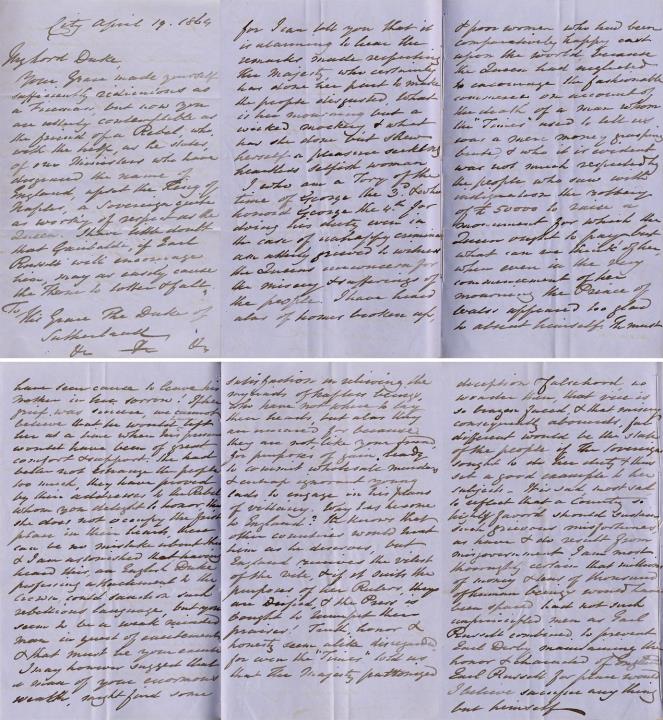 City April 19. 1864
My Lord Duke,
Your Grace made yourself
sufficiently ridiculous as
a Freeman, but now you
are utterly contemptible as
the friend of a Rebel, who
with the help, as he states,
of our Ministers who have
disgraced the name of
England, upset the King of
Naples, a Sovereign quite
as worthy of respect as the
Queen. I have little doubt
that Garibaldi, if Earl
Russell will encourage
him, may as easily cause
the Throne to totter & fall.
To
His Grace The Duke of
Sutherland
&c &c &c
for I can tell you that it
is alarming to hear the
remarks made respecting
the Majesty, who certainly
has done her part to make
the people disgusted. What
is her mourning but a
wicked mockery, & what
has she done but shew
herself a pleasure seeking
heartless selfish woman
I who am a Tory of the
time of George the 3rd, & who
honor George the 4th for
doing his duty even in
the case of unhappy criminals
am utterly grieved to witness
the Queen's unconcern for
the misery & sufferings of
the people. I have heard
alas of homes broken up,
& poor women who had been
comparatively happy cast
upon the world, because
the Queen had neglected
to encourage the fashionable
concerns on account of
the death of a man whom
the "Times" used to tell us
was a mere money grasping
brute, & who it is evident
was not much respected by
the people, who saw with
indignation the robbery
of £50000 to raise a
Monument for which the
Queen ought to pay, but
what can we think of her
when even in the very
commencement of her
mourning the Prince of
Wales appeared too glad
to absent himself. He must
have seen cause to leave his
mother in her sorrow! If her
grief was sincere, we cannot
believe that he would have left
her at a time when his presence
would have been of great
comfort & support. She had
better not estrange the people
too much, they have proved
by their addresses to the Rebel
whom you delight to honor, that
she does not occupy the first
place in their hearts, there
can be no mistake about this
& I am astonished that having
heard this, an English Duke
professing attachment to the
Crown could sanction such
rebellious language, but you
seem to be a weak minded
man in quest of excitement
& that must be your excuse
I may however suggest that
a man of your enormous
wealth, might find some
satisfaction in relieving the
myriads of hapless beings
who have not where to lay
their heads, but alas they
are uncared for because
they are not, like your friend,
for purposes of gain, ready
to commit wholesale murders
& entrap ignorant young
lads to engage in his plans
of villainy. Why has he come
to England? He knows that
other countries would treat
him as he deserves, but
England receives the vilest
of the vile, & if it suits the
purposes of her Rulers, they
are deified, & the Press is
bought to trumpet their
praises. Truth, honor &
honesty seem alike disregarded
for when the "Times" told us
that Her Majesty patronized
deception & falsehood, no
wonder then, that vice is
so brazen faced, & that misery
consequently abounds, far
different would be the state
of the people if the Sovereign
sought to do her duty & thus
set a good example to her
subjects. It is indeed most sad
to reflect that a Country so
highly favored should sustain
such grievous misfortunes
as have & do result from
misgovernment. I am most
thoroughly certain that millions
of money & tens of thousands
of human beings would have
been spared had not such
unprincipled men as Earl
Russell contrived to prevent
Earl Derby maintaining the
honor & character of England
Earl Russell for place would
I believe sacrifice any thing
but himself